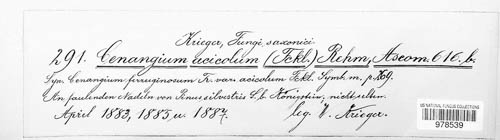 Krieger, Fungi saxonici
291. Cenangium acicolum (Fckl.) Rehm, Ascom. 616. b.
Syn. Cenangium ferruginosum Fr. var. acicolum Fckl. Symb. m. p. 269.
An faulenden Nadeln von Pinus silvestris L. b. Königstein, nicht selten.
April 1883, 1885 u. 1887. leg. W. Krieger.
US NATIONAL FUNGUS COLLECTIONS
978539